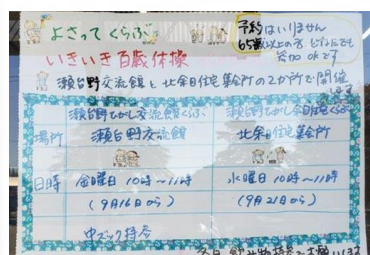 よさってくらぶ
予約はいりません
65歳以上の方 どなたでも
参加OKです
いきいき百歳体操
瀬台野交流館と北余目住宅集会所の2か所で開催
します
場所
瀬台野ひがし交流館くらぶ
瀬台野交流館
瀬台野ひがし余目住宅くらぶ
北余目住宅集会所
日時
金曜日 10時〜11時
(9月16日から)
水曜日 10時〜11時
(9月21日から)
中ズック持参